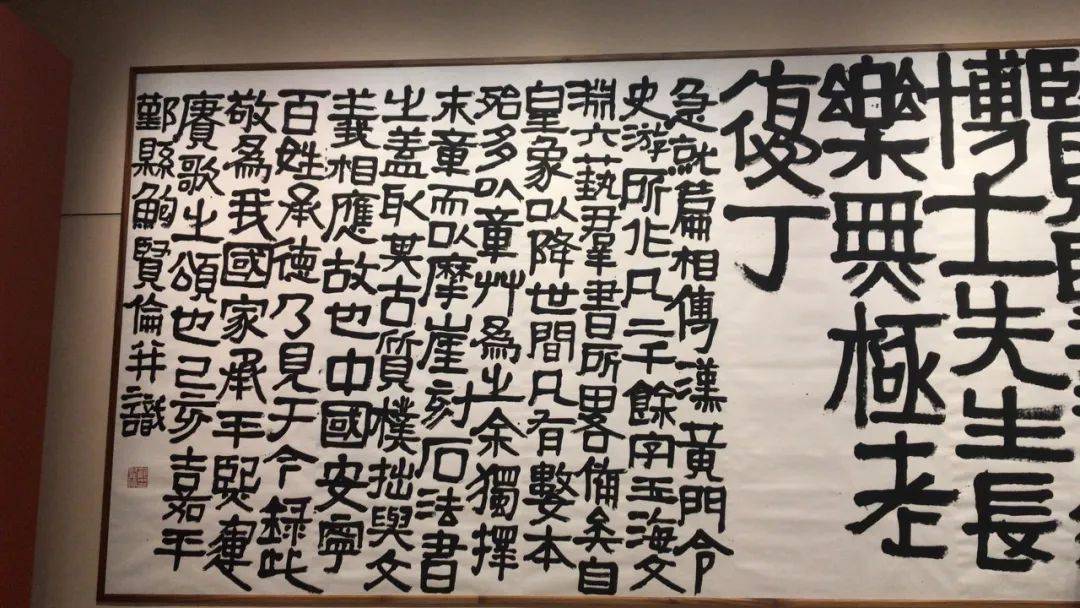 博士先生長
樂無極老
復丁
急就篇相傳漢黃門令
史游所作凡二千餘字玉海文
淵六藝羣書所畧備矣自
皇象以降世間凡有數本
殆多以章艸為之余獨擇
末章而以摩崖刻石法書
之蓋取其古質樸拙與文
義相應故也中國安寧
百姓承德乃見于今錄此
敬為我國家承平熙運
賡歌之頌也己亥嘉平
鄞縣鮑賢倫并識